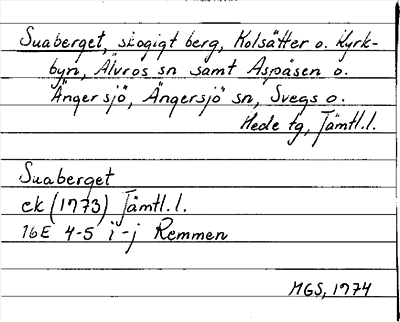 Suaberget, skogigt berg, Kolsätter o. Kyrk-
byn, Älvros sn samt Aspåsen o.
Ängersjö, Ängersjö sn, Svegs o.
Hede tg, Jämtl.l.
Suaberget
ek (1973) Jämtl.l.
16E 4-5 i-j Remmen
MGS, 1974